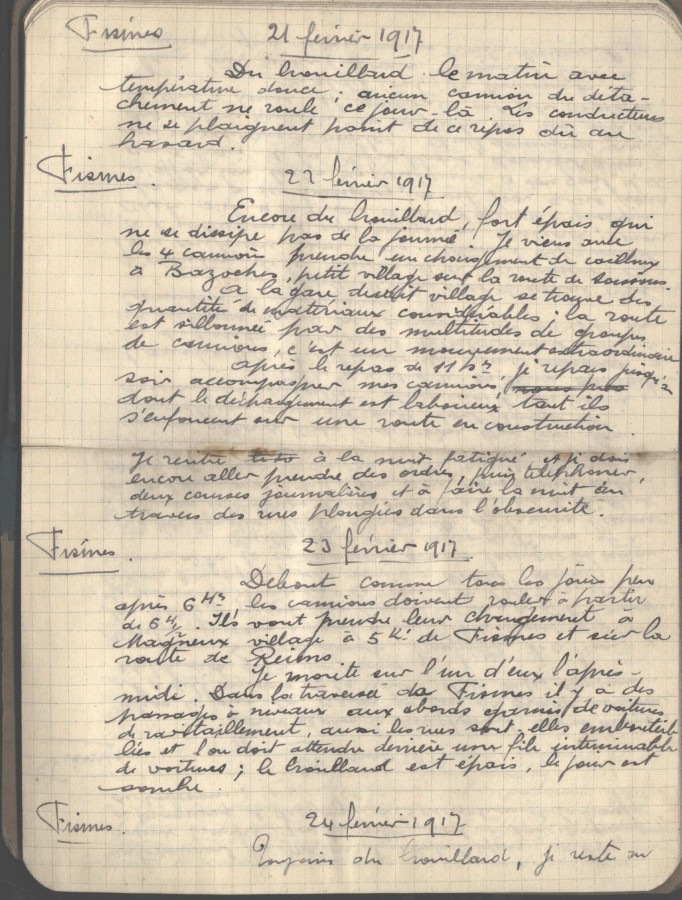 Fismes 21 février 1917
Du brouillard le matin avec
température douce ; aucun camion du déta-
chement ne roule ce jour-là. Les conducteurs
ne se plaignent point de ce repos dû au
hasard.
Fismes. 22 février 1917
Encore du brouillard, fort épais qui
ne se dissipe pas de la journée. Je viens avec
les 4 camions prendre un chargement de cailloux
à Bazoches, petit village sur la route de Soissons.
A la gare dudit village se trouve des
quantités de matériaux considérables ; la route
est sillonnée par des multitudes de groupes
de camions, c'est un mouvement extraordinaire
après le repas de 11h, je repars jusqu'au
soir accompagner mes camions,
dont le déchargement est laborieux tant ils
s'enfoncent sur une route en construction.
Je rentre à la nuit fatigué et je dois
encore aller prendre des ordres, puis téléphoner,
deux courses journalières et à faire la nuit en
travers des rues plongées dans l'obscurité.
Fismes. 23 février 1917.
Debout comme tous les jours peu
après 6Hs les camions doivent rouler à partir
de 6h. Ils vont prendre leur chargement à
Magneux village à 5K. de Fismes et sur la
route de Reims
Je monte sur l'un d'eux l'après-
midi. Dans la traversée de Fismes il y a des
passages à niveaux aux abords garnis de voitures
de ravitaillement, aussi les rues sont-elles embouteil-
lées et l'on doit attendre derrière une file interminable
de voitures ; le brouillard est épais, le jour est
sombre.
Fismes. 24 février 1917
Toujours du brouillard, je reste au